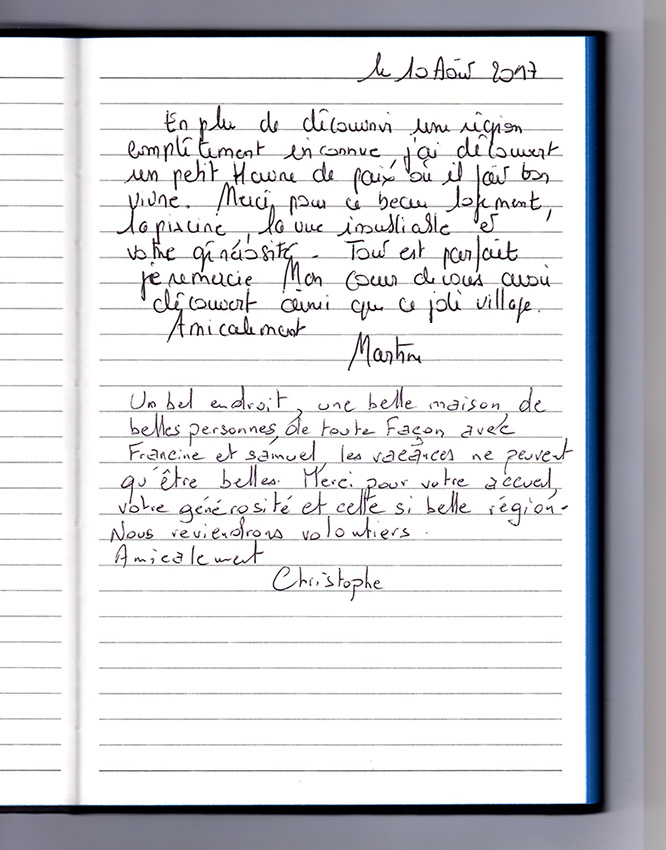 le 10 Août 2017
En plus de découvrir une région
complètement inconnue, j'ai découvert
un petit Havre de paix, où il fait bon
vivre. Merci, pour ce beau logement,
la piscine, la vue inoubliable et
votre générosité. Tout est parfait
je remercie Mon cœur de vous avoir
découvert ainsi que ce joli village.
Amicalement
Martine
Un bel endroit, une belle maison, de
belles personnes, de toute Façon avec
Francine et samuel, les vacances ne peuvent
qu'être belles. Merci pour votre accueil,
votre générosité et cette si belle région.
Nous reviendrons volontiers.
Amicalement
Christophe